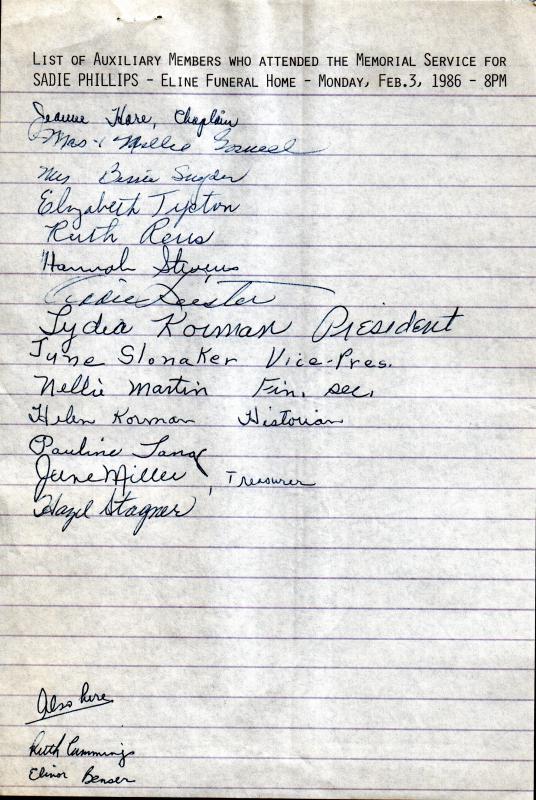 LIST OF AUXILIARY MEMBERS WHO ATTENDED THE MEMORIAL SERVICE FOR
SADIE PHILLIPS - ELINE FUNERAL HOME - MONDAY, FEB.3, 1986 - 8PM
Jeanne Hare, Chaplain
Mrs. Millie
Mrs Bessie Snyder
Elizabeth Tipton
Ruth
Hannah Stevens
Addie Leister
Lydia Korman President
June Slonaker Vice-Pres.
Nellie Martin Fin. sec.
Helen Korman Historian
Pauline Lang
Jane Miller, Treasurer
Hazel Stagner
Also here
Ruth Cummings
Elinor Benser